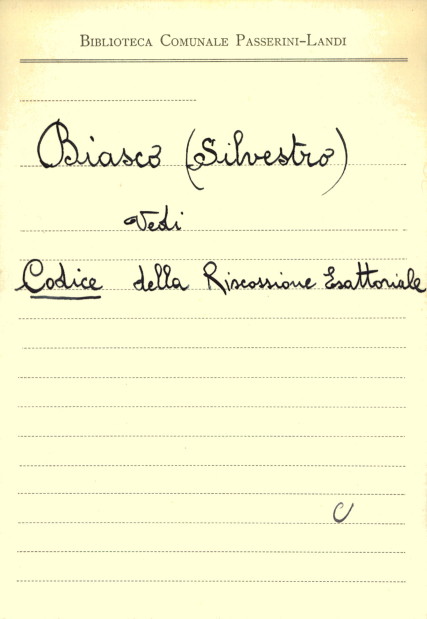 Biblioteca Comunale Passerini-Landi
Biasco (Silvestro)
Vedi
Codice della Riscossione Esattoriale
C